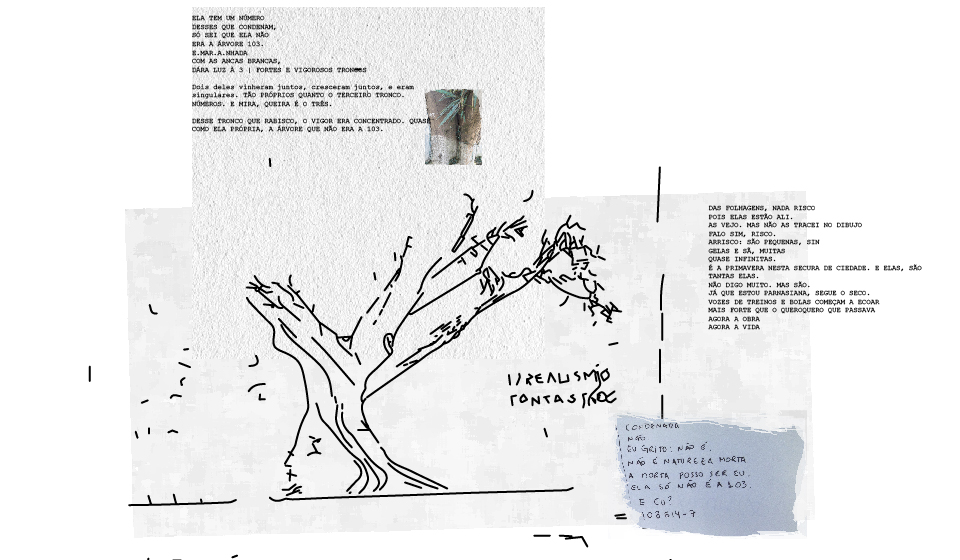 ELA TEM UM NÚMERO
DESSES QUE CONDENAM,
SÓ SEI QUE ELA NÃO
ERA A ÁRVORE 103.
E.MAR.A.NHADA
COM AS ANCAS BRANCAS,
DÁRA LUZ À 3 | FORTES E VIGOROSOS TRONCOS
Dois deles vinheram juntos, cresceram juntos, e eram
singulares. TÃO PRÓPRIOS QUANTO O TERCEIRO TRONCO.
NÚMEROS. E MIRA, QUEIRA É O TRÊS.
DESSE TRONCO QUE RABISCO, O VIGOR ERA CONCENTRADO. QUASE
COMO ELA PRÓPRIA, A ÁRVORE QUE NÃO ERA A 103.
DAS FOLHAGENS, NADA RISCO
POIS ELAS ESTÃO ALI.
AS VEJO. MAS NÃO AS TRACEI NO DIBUJO
FALO SIM, RISCO.
ARRISCO: SÃO PEQUENAS, SIN
GELAS E SÃ, MUITAS
QUASE INFINITAS.
É A PRIMAVERA NESTA SECURA DE CIEDADE. E ELAS, SÃO
TANTAS ELAS.
NÃO DIGO MUITO. MAS SÃO.
JÁ QUE ESTOU PARNASIANA, SEGUE O SECO.
VOZES DE TREINOS E BOLAS COMEÇAM A ECOAR
MAIS FORTE QUE O QUEROQUERO QUE PASSAVA
AGORA A OBRA
AGORA A VIDA
CONDENADA
NÃO
EU GRITO: NÃO É.
NÃO É NATUREZA MORTA
A MORTA POSSO SER EU.
ELA SÓ NÃO É A 103.
E EU?